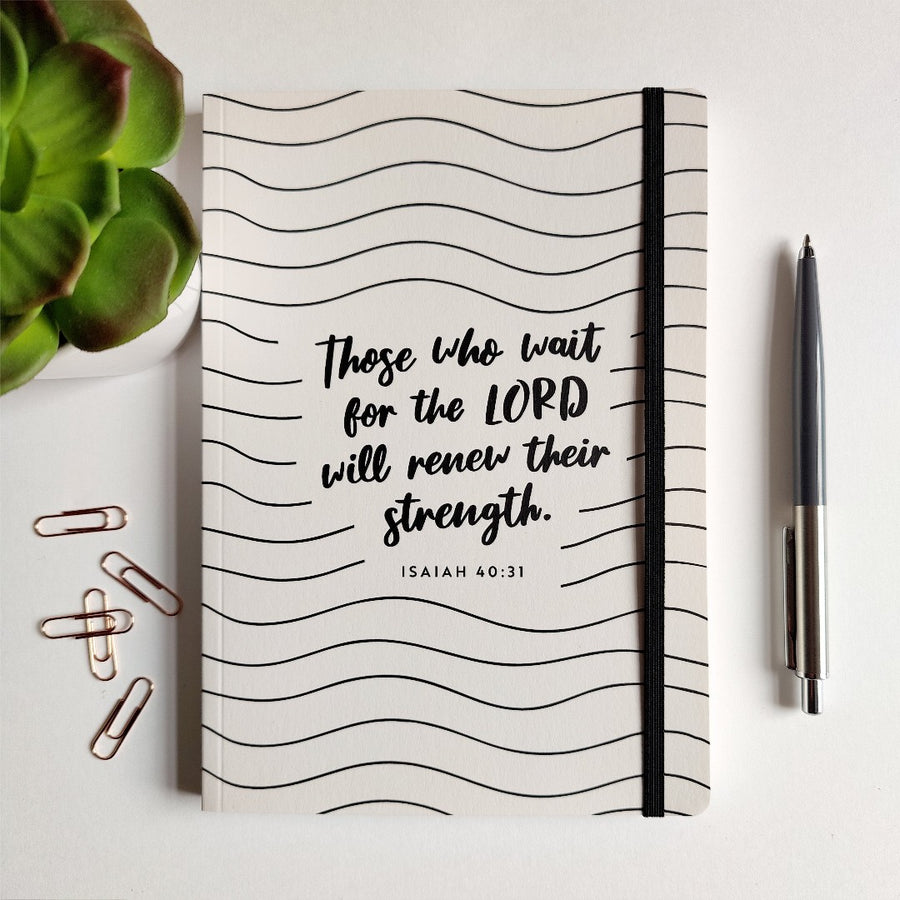 Those who wait
for the LORD
will renew their
strength.
ISAIAH 40:31